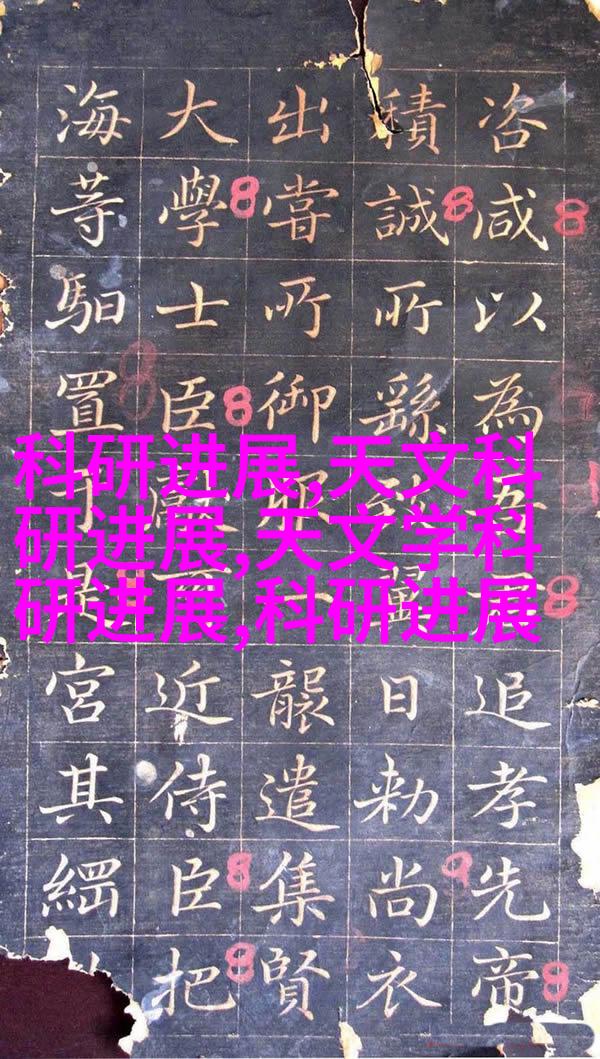 咨咸以為追孝先帝
積誠所繇日勑尚衣
出嘗所御一襲遣集賢
大學士臣近侍臣把
海等馹置宮其
科研进展,天文科
研进展,天文学科
研进展,科研进展